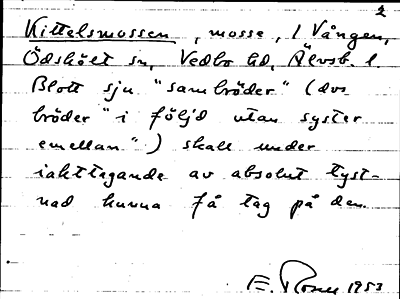 2
Kittelsmossen, mosse, i Vången,
Ödskölt sn, Vedbo hd, Älvsb. l.
Blott sju "sambröder" (dvs
bröder "i följd utan syster
emellan") skall under
iakttagande av absolut tyst-
nad kunna få tag på den.
E. Rosell 1953